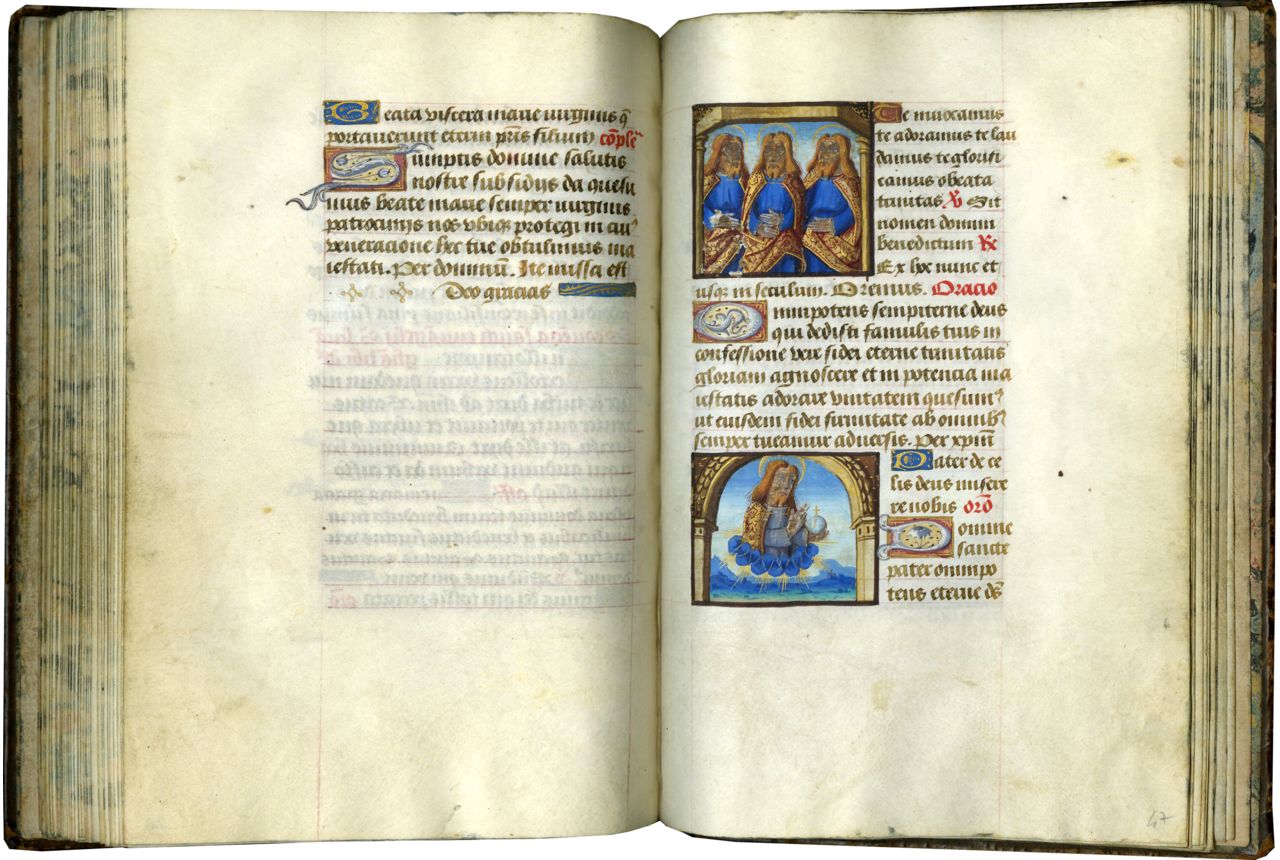 Beata viscera marie virginis q̄
portauerunt eterni pr̄is filium cōple
Sumptis domine salutis
nostre subsidijs da quesu
mus beate marie semper virginis
patrocinijs nos vbiq protegi in cui⁹
veneracione hec tue obtulimus ma
iestati. Per dominū. Ite missa est
Deo gracias
Te inuocamus
te adoramus te lau
damus te glorifi
camus o beata
trinitas ℣ Sit
nomen domini
benedictum ℟
Ex hoc nunc et
usq in seculum. Oremus. Oracio
Omnipotens sempiterne deus
qui dedisti famulis tuis in
confessione vere fidei eterne trinitatis
gloriam agnoscere et in potencia ma
iestatis adorare vnitatem quesum⁹
ut eiusdem fidei firmitate ab omnib⁹
semper tueamur aduersis. Per xpim̄
Pater de ce
lis deus misere
re nobis orō
Domine
sancte
pater omnipo
tens eterne ds̄
47